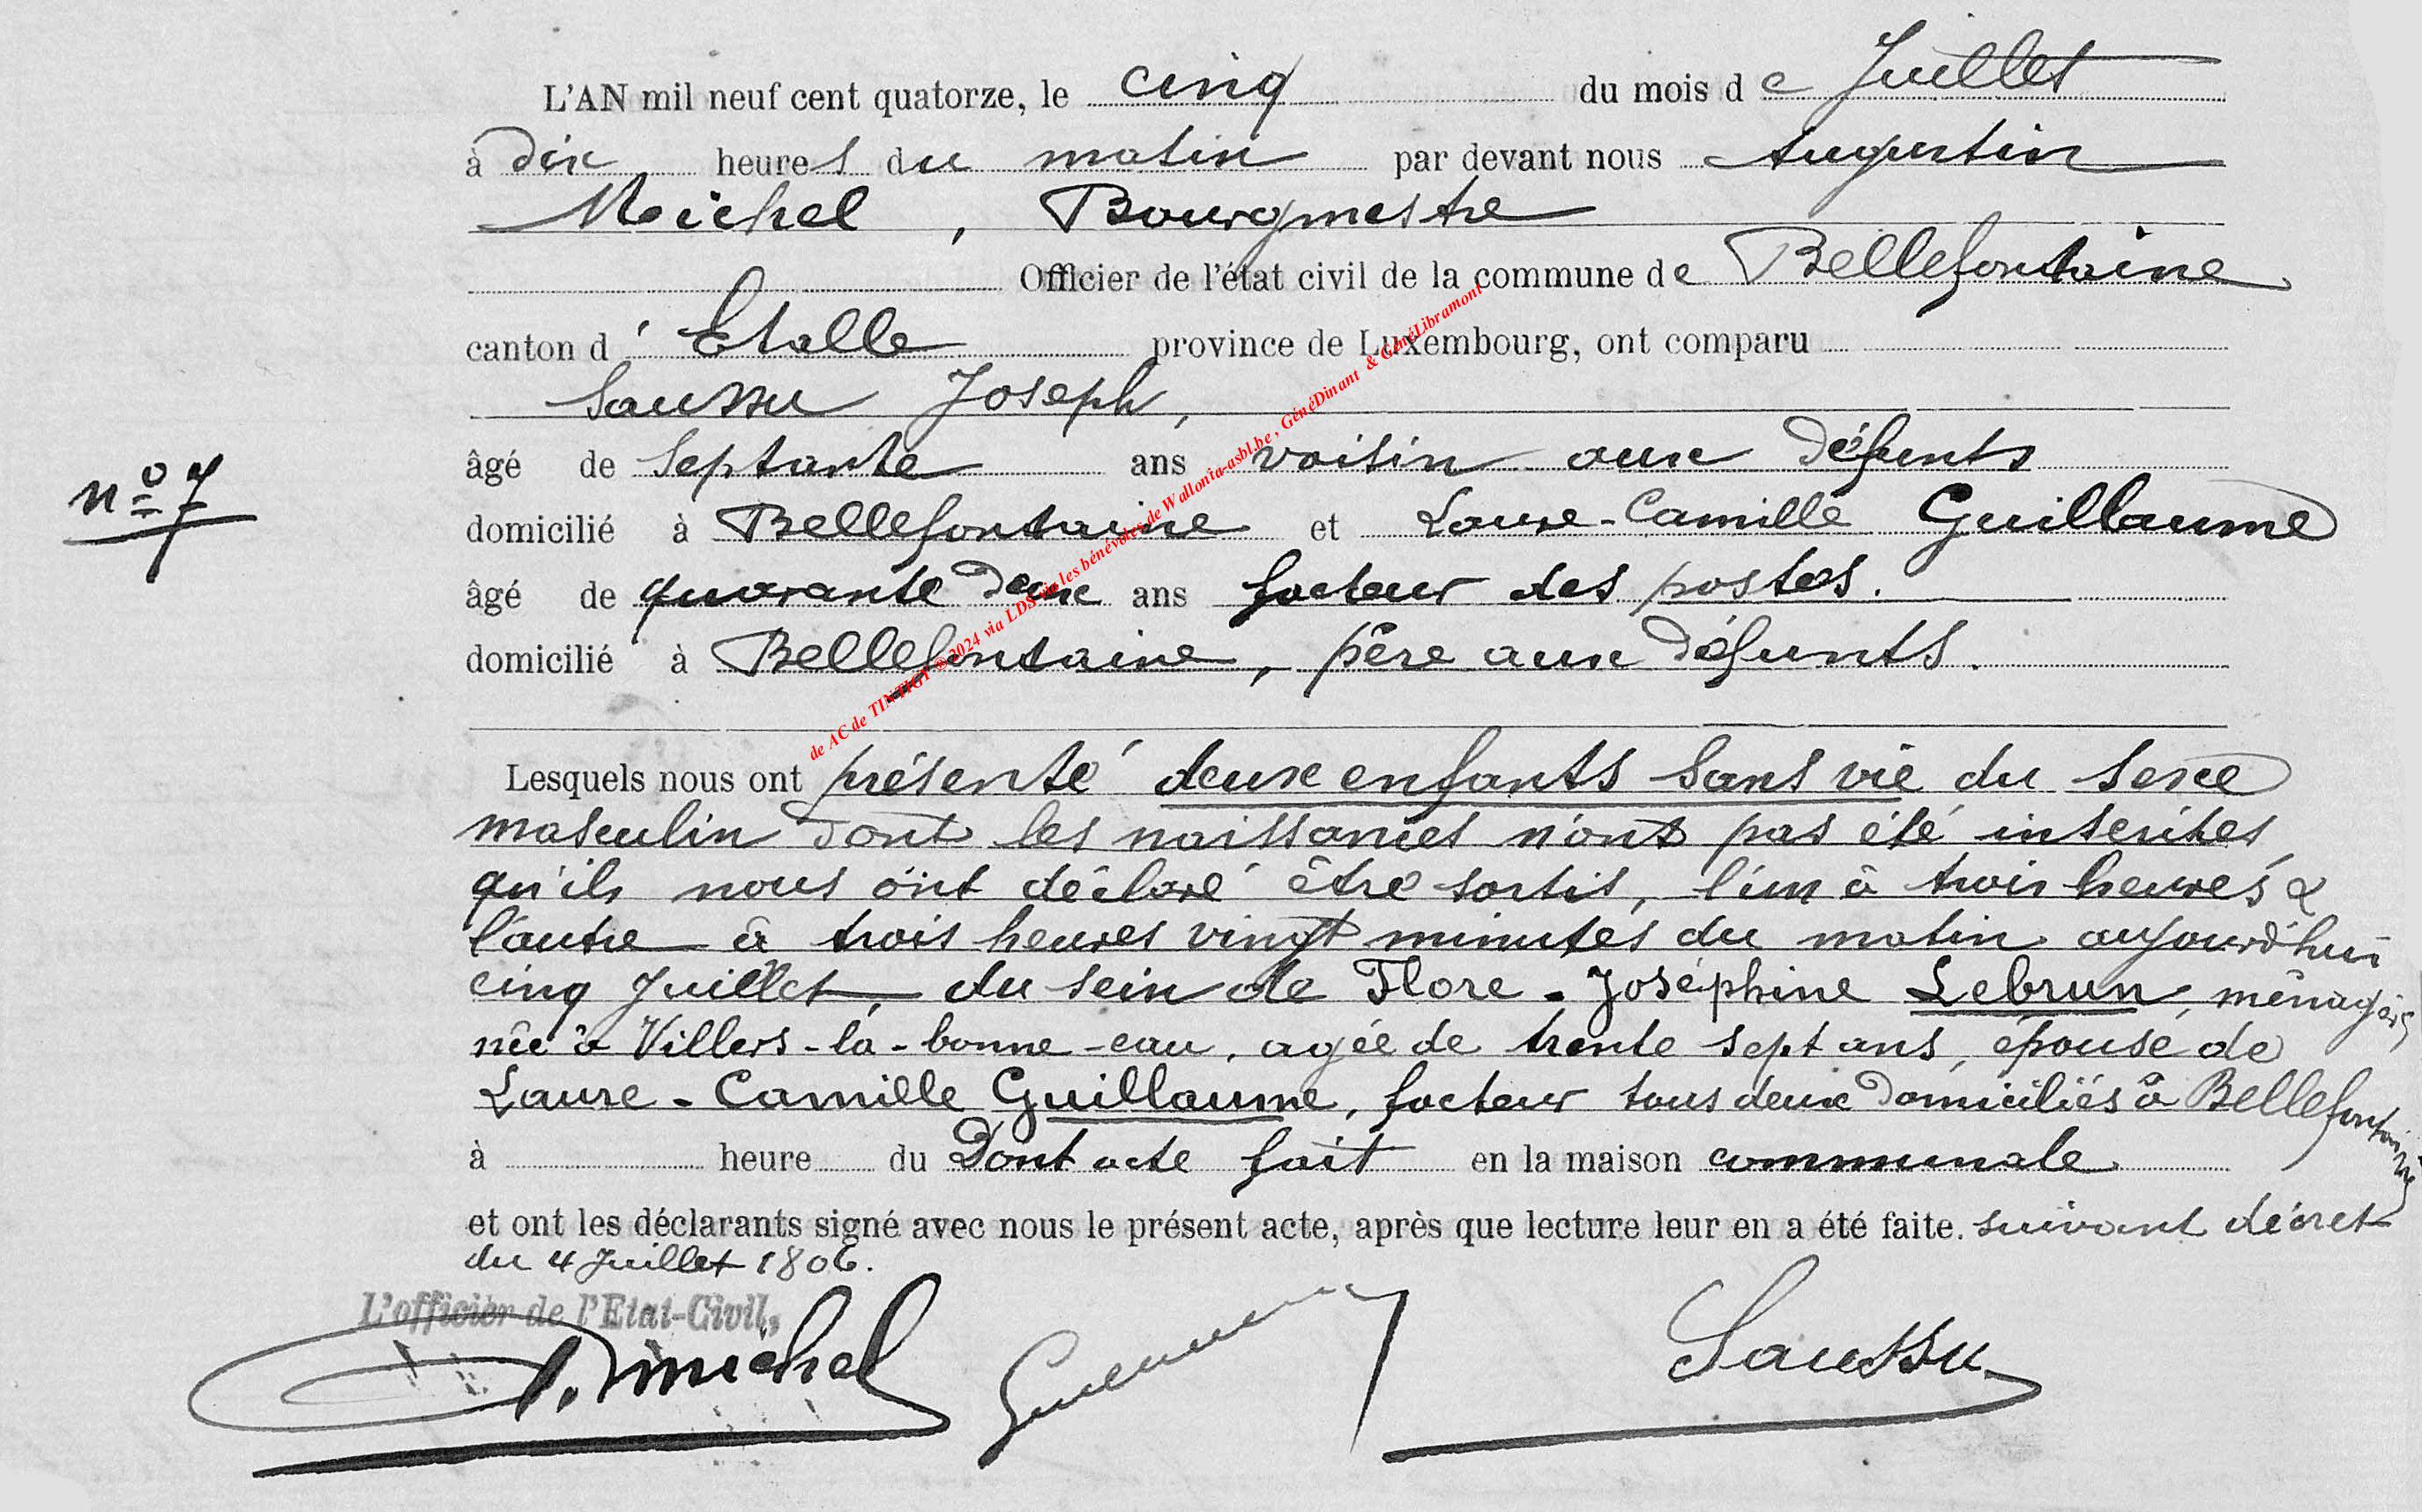 L'AN mil neuf cent quatorze, le cinq du mois de Juillet
à dix heures du matin par devant nous Augustin
Michel, Bourgmestre
Officier de l'état civil de la commune de Bellefontaine
canton d'Etalle province de Luxembourg, ont comparu
Saussu Joseph,
âgé de septante ans voisin aux défunts
n° 7
domicilié à Bellefontaine et Laure-Camille Guillaume
âgé de quarante deux ans facteur des postes.
domicilié à Bellefontaine, père aux défunts.
de AC de TINTIGT © 2024 via LDS via les bénévoles de Wallonia-asbl.be, GénéDinant & GénéLibramont
Lesquels nous ont présenté deux enfants sans vie du sexe
masculin dont les naissances n'ont pas été inscrites,
qu'ils nous ont déclaré être sortis, l'un à trois heures &
l'autre à trois heures vingt minutes du matin aujourd'hui
cinq Juillet, du sein de Flore-Joséphine Lebrun, ménagère
née à Villers-la-bonne-eau, agée de trente sept ans, épouse de
Laure-Camille Guillaume, facteur tous deux domiciliés à Bellefontaine
à heure du Dont acte fait en la maison communale
et ont les déclarants signé avec nous le présent acte, après que lecture leur en a été faite. suivant décret
du 4 Juillet 1806.
L'officier de l'Etat-Civil,
A. Michel
Saussu